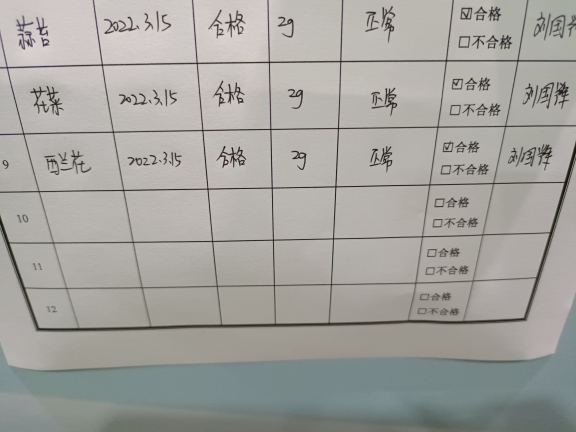 蒜苔 2022.3.15 合格 2g 正常 ☑合格 刘国辉
☐不合格
花菜 2022.3.15 合格 2g 正常 ☑合格 刘国辉
☐不合格
9 西兰花 2022.3.15 合格 2g 正常 ☑合格 刘国辉
☐不合格
10 ☐合格
☐不合格
11 ☐合格
☐不合格
12 ☐合格
☐不合格